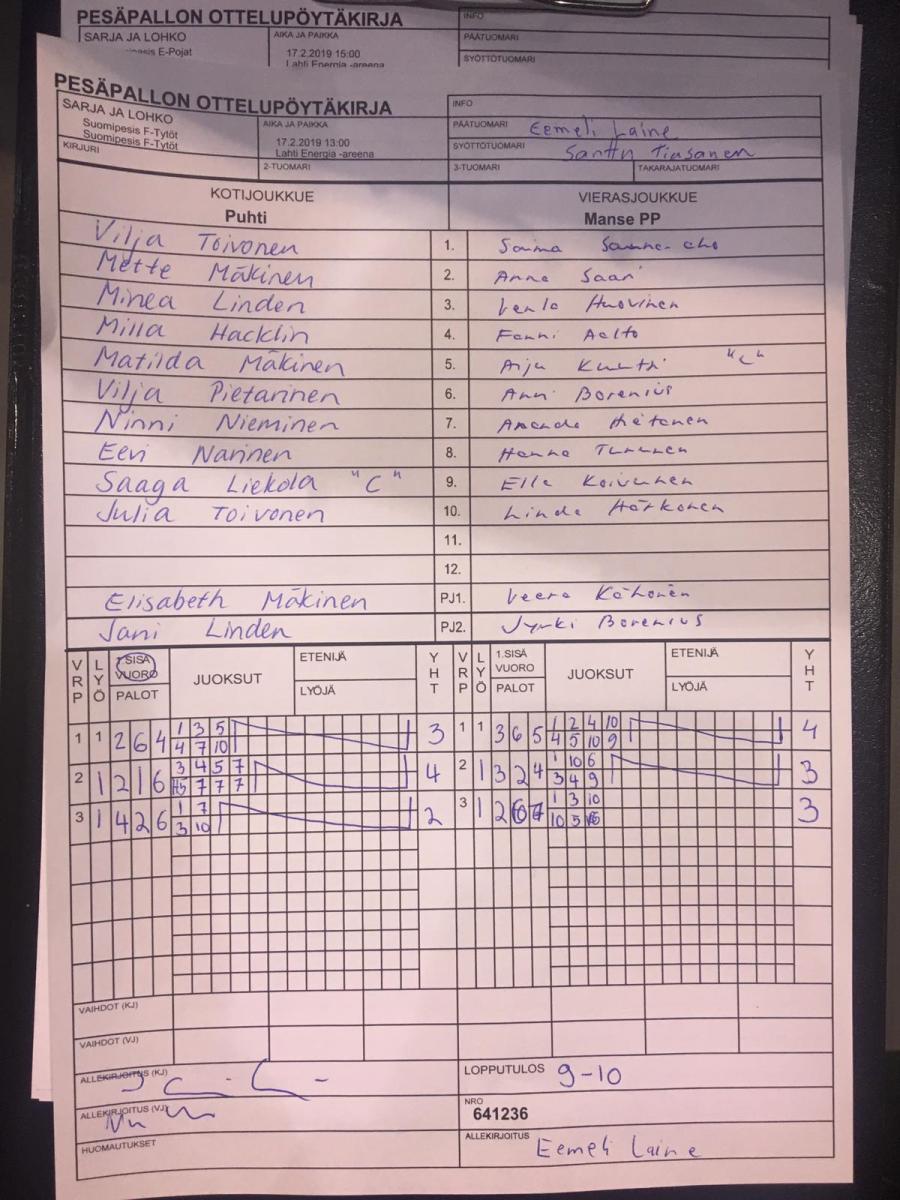 PESÄPALLON OTTELUPÖYTÄKIRJA
INFO
SARJA JA LOHKO
AIKA JA PAIKKA
PÄÄTUOMARI
E-Pojat
17.2.2019 15:00
SYÖTTÖTUOMARI
Lahti Energia -areena
PESÄPALLON OTTELUPÖYTÄKIRJA
INFO
SARJA JA LOHKO
AIKA JA PAIKKA
PÄÄTUOMARI Eemeli Laine
Suomipesis F-Tytöt
Suomipesis F-Tytöt
17.2.2019 13:00
SYÖTTÖTUOMARI Santtu
Lahti Energia -areena
KIRJURI
2-TUOMARI
3-TUOMARI
TAKARAJATUOMARI
KOTIJOUKKUE
VIERASJOUKKUE
Puhti
Manse PP
Vilja Toivonen 1. Saima
Mette Mäkinen 2. Anna Saari
Minea Linden 3. Venla Huovinen
Milla Hacklin 4. Fanni Aalto
Matilda Mäkinen 5. "C"
Vilja Pietarinen 6. Anni Borenius
Ninni Nieminen 7. Amanda Hietanen
Eevi Narinen 8. Hanna Turunen
Saaga Liekola "C" 9. Ella Koivunen
Julia Toivonen 10. Linda Härkönen
11.
12.
Elisabeth Mäkinen PJ1. Veera Kähönen
Jani Linden PJ2. Jyrki Borenius
VRP LYÖ 1.SISÄ VUORO PALOT JUOKSUT ETENIJÄ LYÖJÄ YHT VRP LYÖ 1.SISÄ VUORO PALOT JUOKSUT ETENIJÄ LYÖJÄ YHT
1 3 5 1 2 4 10
1 1 2 6 4 3 1 1 3 6 5 4
4 7 10 4 5 10 9
3 4 5 7 1 10 6
2 1 2 1 6 4 2 1 3 2 4 3
7 7 7 3 4 9
1 7 1 3 10
3 1 4 2 6 2 3 1 2 3
3 10 10 5
VAIHDOT (KJ)
VAIHDOT (VJ)
ALLEKIRJOITUS (KJ)
LOPPUTULOS 9-10
ALLEKIRJOITUS (VJ)
NRO
641236
HUOMAUTUKSET
ALLEKIRJOITUS
Eemeli Laine